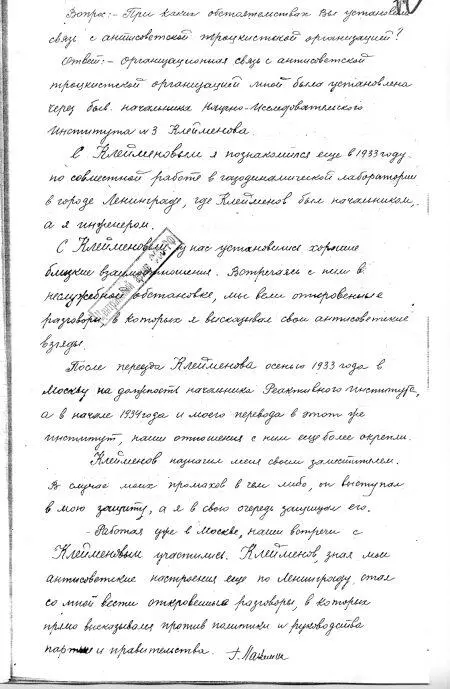 Вопрос:- При каких обстоятельствах Вы установили
связь с антисоветской троцкистской организацией?
Ответ:- Организационная связь с антисоветской
троцкистской организацией мной была установлена
через быв. начальника Научно-Исследовательского
Института №3 Клейменова.
С Клейменовым я познакомился еще в 1933 году
по совместной работе в газодинамической лаборатории
в городе Ленинграде, где Клейменов был начальником,
а я инженером.
С Клейменовым у нас установились хорошие
близкие взаимоотношения. Встречаясь с ним в
неслужебной обстановке, мы вели откровенные
разговоры, в которых я высказывал свои антисоветские
взгляды.
После переезда Клейменова осенью 1933 года в
Москву на должность начальника Реактивного института,
а в начале 1934 года и моего перевода в этот же
институт, наши отношения с ним еще более окрепли.
Клейменов назначил меня своим заместителем.
В случае моих промахов в чем либо, он выступал
в мою защиту, а я в свою очередь защищал его.
- Работая уже в Москве, наши встречи с
Клейменовым участились. Клейменов, зная мои
антисоветские настроения еще по Ленинграду, стал
со мной вести откровенные разговоры, в которых
прямо высказывался против политики и руководства
партии и правительства.